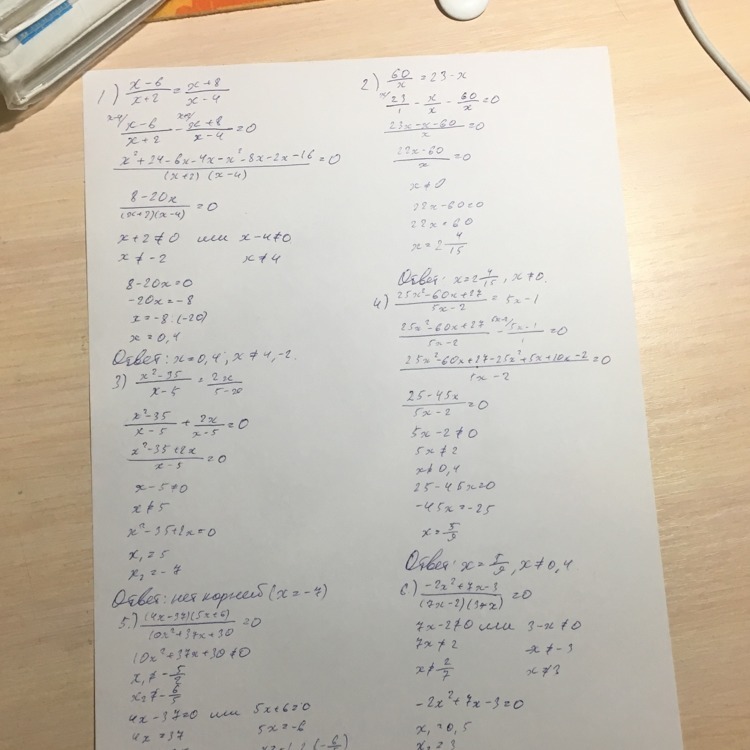 1) (x-6)/(x+2) = (x+8)/(x-4)
x-4/ (x-6)/(x+2) - x+2/ (x+8)/(x-4) = 0
(x²+24-6x-4x-x²-8x-2x-16)/((x+2)(x-4)) = 0
(8-20x)/((x+2)(x-4)) = 0
x+2≠0 или x-4≠0
x≠-2 x≠4
8-20x=0
-20x=-8
x=-8:(-20)
x=0,4
Ответ: x=0,4; x≠4,-2.
3) (x²-35)/(x-5) = 2x/(5-x)
(x²-35)/(x-5) + 2x/(x-5) = 0
(x²-35+2x)/(x-5) = 0
x-5≠0
x≠5
x²-35+2x=0
x₁=5
x₂=-7
Ответ: нет корней (x=-7)
5.) (4x-37)(5x+6)/(10x²+37x+30) = 0
10x²+37x+30≠0
x₁≠-5/2
x₂≠-6/5
4x-37=0 или 5x+6=0
4x=37 5x=-6
2) 60/x = 23-x
23/1 - x/x - 60/x = 0
(23x-x-60)/x = 0
(22x-60)/x = 0
x≠0
22x-60=0
22x=60
x=2 4/15
Ответ: x=2 4/15, x≠0.
4) (25x²-60x+27)/(5x-2) = 5x-1
(25x²-60x+27)/(5x-2) - 5x-2/ (5x-1)/1 = 0
(25x²-60x+27-25x²+5x+10x-2)/(5x-2) = 0
(25-45x)/(5x-2) = 0
5x-2≠0
5x≠2
x≠0,4
25-45x=0
-45x=-25
x=5/9
Ответ: x=5/9, x≠0,4
6) (-2x²+7x-3)/((7x-2)(3-x)) = 0
7x-2≠0 или 3-x≠0
7x≠2 -x≠-3
x≠2/7 x≠3
-2x²+7x-3=0
x₁=0,5
x₂=3